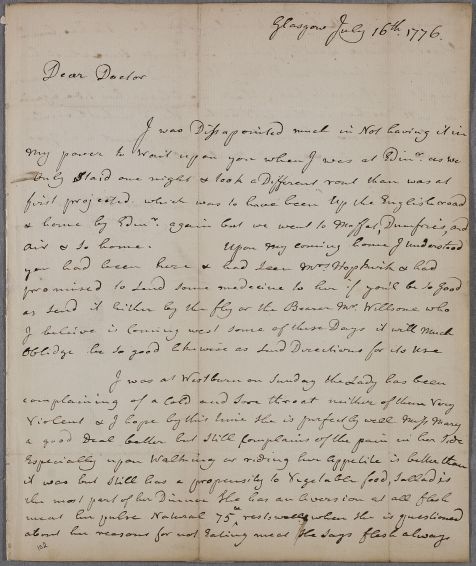 Glasgow July 16th. 1776.
Dear Doctor
I was Dissapointed much in Not having it in
my power to Wait upon you when I was at Edinr. as we
Only Staid one night & took a Different rout than was at
first projected which was to have been Up the English road
& home by Edinr. again but we went to Moffat, Dumfries, and
Air & So home. Upon my coming home I understood
you had been here & had Seen Mrs Hopkirk & had
promised to Send Some medecine to her if you'l be So good
as Send it Either by the fly or the Bearer Mr. Willsone who
I beleive is Coming west some of these Days it will Much
Oblidge be so good likewise as Send Directions for its Use
I was at Westburn on Sunday the Lady has been
complaining of a Cold and Sore throat neither of them Very
Violent & I hope by this time She is perfectly well Miss Mary
a good Deal better but Still Complains of the pain in her Side
Especially upon Walking or riding her Appetite is better than
it was but Still has a propensity to Vegetable food, Sallad is
the most part of her Dinner She has an Aversion at all flesh
meat her pulse Natural 75 rests well when She is questioned
about her reasons for not Eating meat She Says flesh always